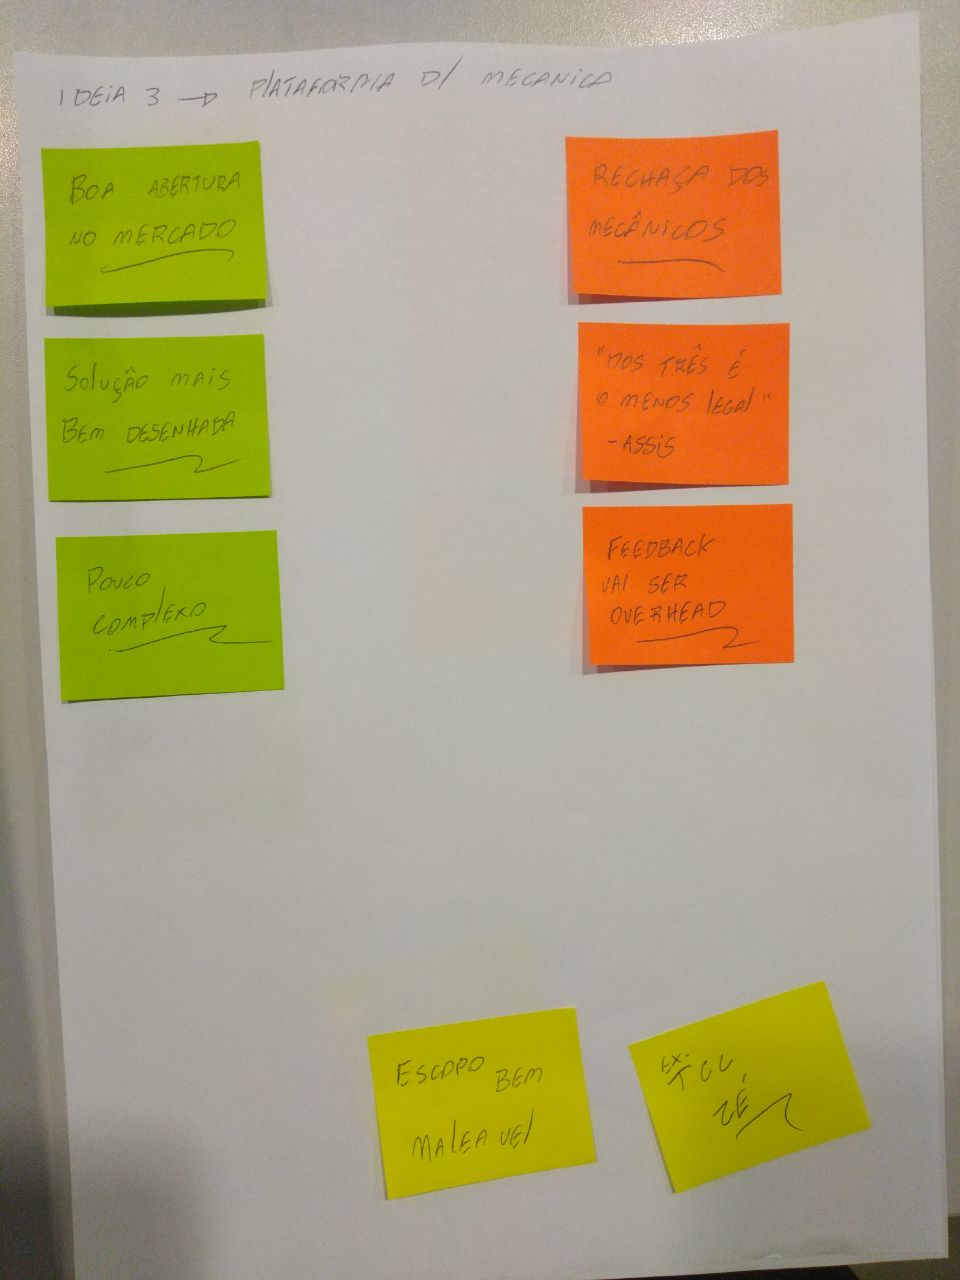 IDEIA 3 → PLATAFORMA D/ MECANICA
BOA ABERTURA
NO MERCADO
SOLUÇÃO MAIS
BEM DESENHADA
POUCO
COMPLEXO
RECHAÇA DOS
MECÂNICOS
"DOS TRÊS É
O MENOS LEGAL"
-ASSIS
FEEDBACK
VAI SER
OVERHEAD
ESCOPO BEM
MALEAVEL
EX-
TCC
ZÉ